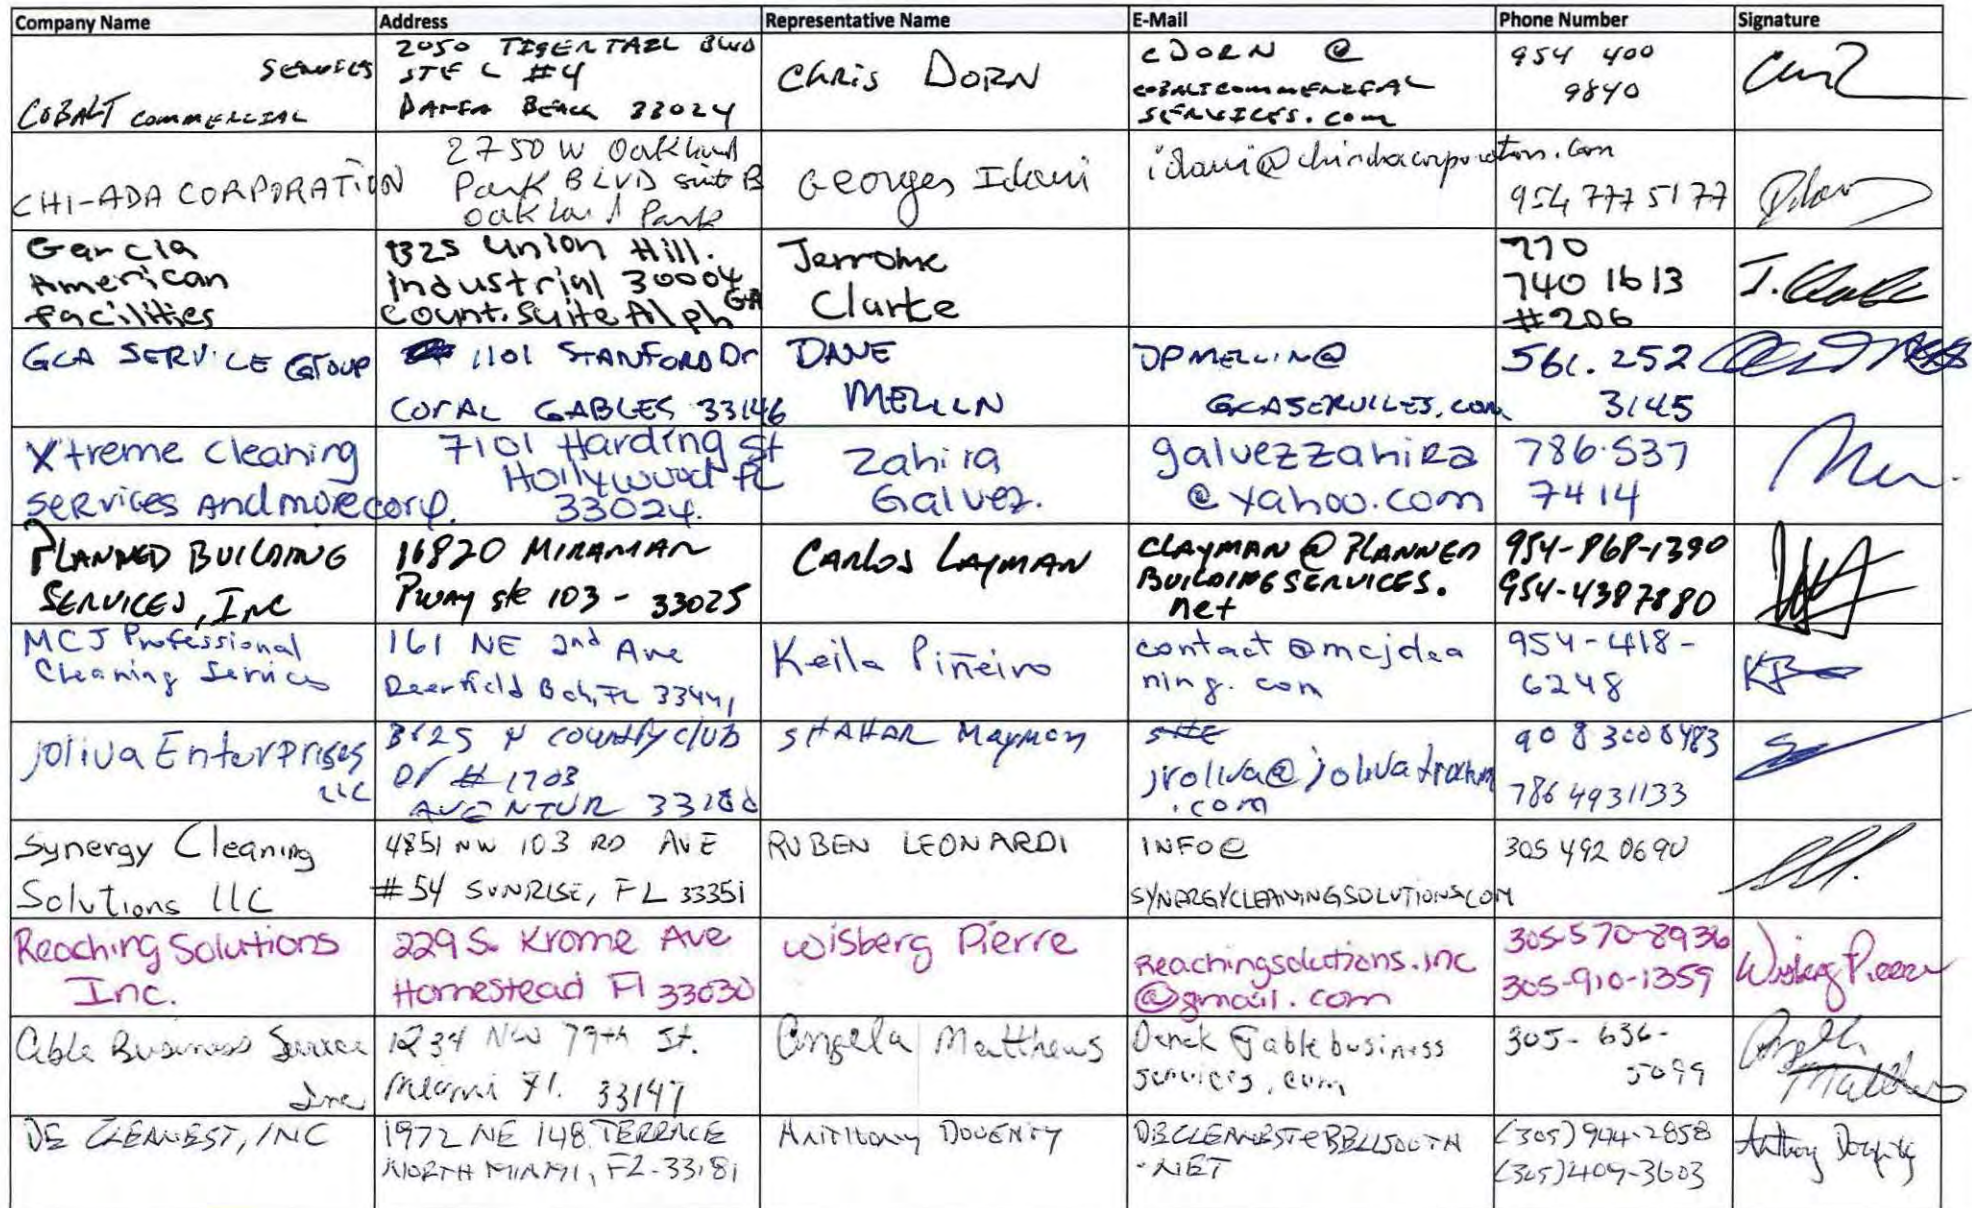 Company Name
Address
Representative Name
E-Mail
Phone Number
Signature
SERVICES
COBALT COMMERCIAL
2050 TIGERTAIL BLVD
STE C #4
DANIA BEACH 33024
Chris DORN
CDORN @
COBALTCOMMERCIAL
SERVICES.com
954 400
9840
CHI-ADA CORPORATION
2750 W Oakland
Park BLVD suit B
Oakland Park
Georges Idani
954 777 5177
Garcia
American
facilities
Union Hill.
industrial 30004
Count. Suite Alph GA
Jerrome
Clarke
770
740 1613
#206
J. Clarke
GCA SERVICE Group
1101 STANFORD Dr
CORAL GABLES 33146
DANE
MELLIN
DPMELLIN@
GCASERVICES.com
561.252
3145
Xtreme Cleaning
services And more corp.
7101 Harding St
Hollywood FL
33024.
Zahira
Galvez.
galvezzahira
@yahoo.com
786.537
7414
PLANNED BUILDING
SERVICES, INC
16820 MIRAMAR
Pway ste 103 - 33025
CARLOS LAYMAN
CLAYMAN @ PLANNED
BUILDINGSERVICES.
net
954-868-1390
954-4387880
MCJ Professional
Cleaning Services
161 NE 2nd Ave
Deerfield Bch, FL 33441
Keila Piñeiro
contact @mcjclea
ning.com
954-418-
6248
joliva Enterprises
LLC
N country club
Dr #1703
AVENTUR 33180
SHAHAR Maymon
jroliva@
.com
908 300 8483
786 4931133
Synergy Cleaning
Solutions LLC
4851 NW 103 RD AVE
#54 SUNRISE, FL 33351
RUBEN LEONARDI
INFO@
SYNERGYCLEANINGSOLUTIONS.COM
305 492 0690
Reaching Solutions
Inc.
229 S. Krome Ave
Homestead Fl 33030
Wisberg Pierre
Reachingsolutions.inc
@gmail.com
305-570-8936
305-910-1359
Wisberg Pierre
Able Business Service
Inc
1234 NW 79th St.
Miami Fl. 33147
Angela Matthews
Derek @ablebusiness
services.com
305-636-
5099
Angela
Matthews
DE CLEANEST, INC
1972 NE 148 TERRACE
NORTH MIAMI, FL-33181
Anthony DOUENTY
DECLEANEST@BELLSOUTH
.NET
(305)944-2858
(305)409-3603
Anthony